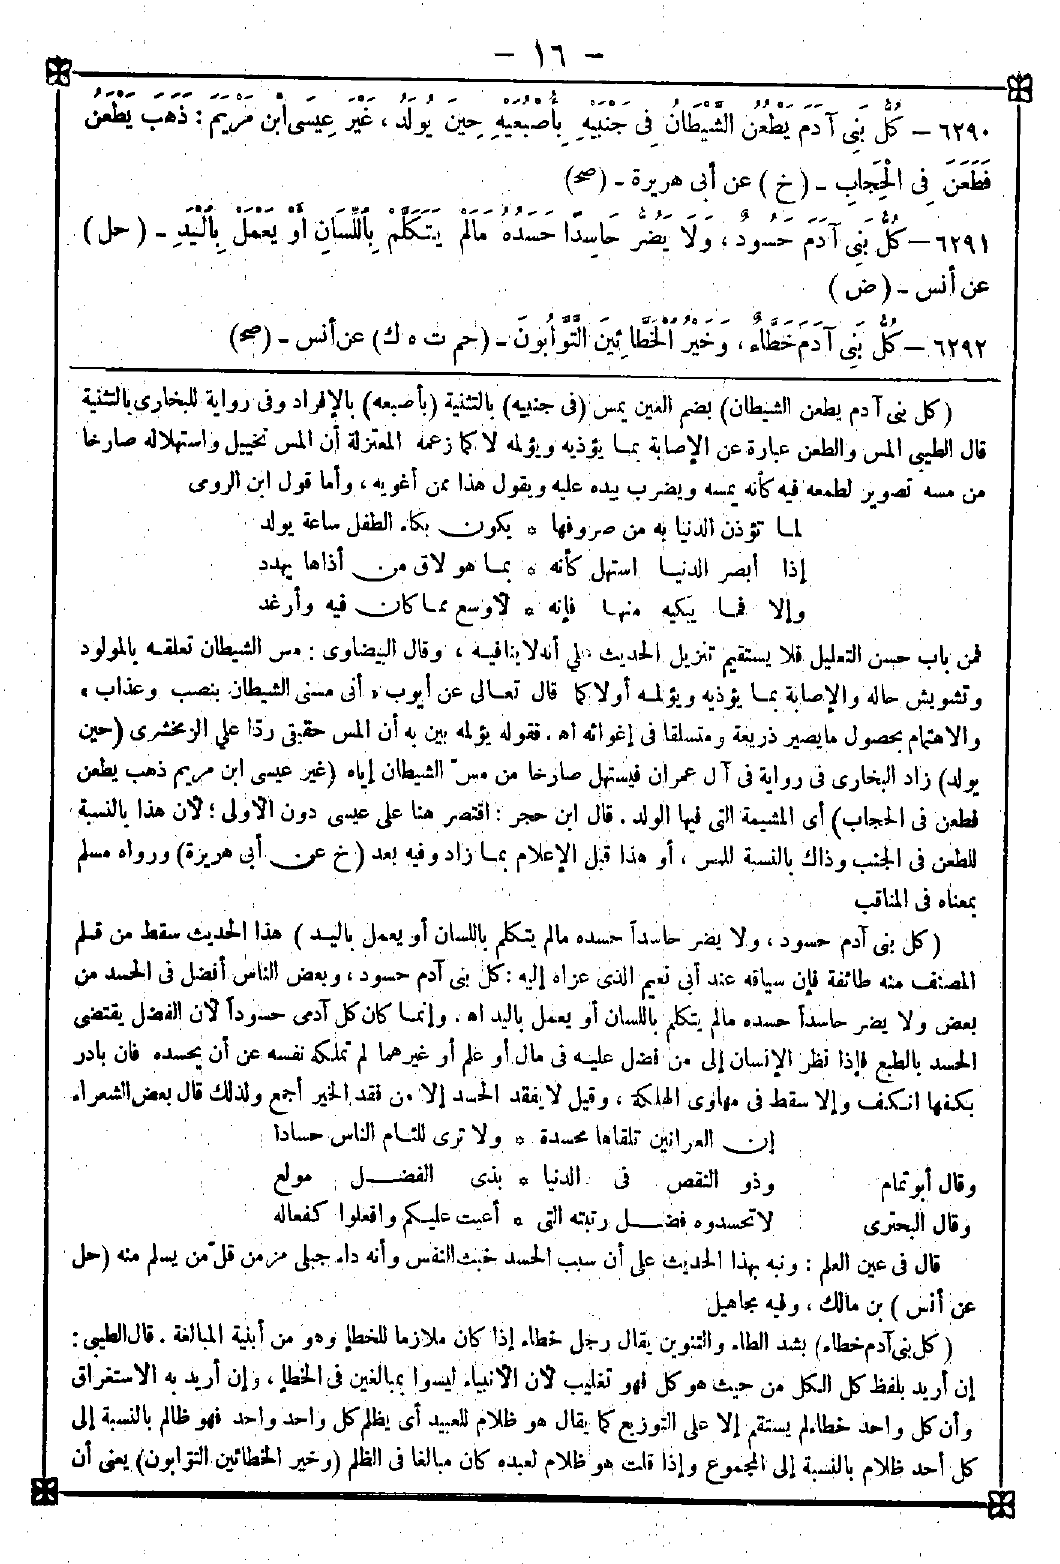 – ١٦ –
٦٢٩٠ – كُلُّ بَنِي آدَمَ يَطْعُنُ الشَّيْطَانُ فِي جَنْبَيْهِ بِأُصْبُعَيْهِ حِينَ يُولَدُ، غَيْرَ عِيسَى ابْنِ مَرْيَمَ: ذَهَبَ يَطْعَنُ
فَطَعَنَ فِي الْحِجَابِ – (خ) عن أبى هريرة – (صح)
٦٢٩١ – كُلُّ بَنِي آدَمَ حَسُودٌ، وَلَا يَضُرُّ حَاسِدًا حَسَدُهُ مَالَمْ يَتَكَلَّمْ بِاللِّسَانِ أَوْ يَعْمَلْ بِالْيَدِ – (حل)
عن أنس – (ض)
٦٢٩٢ – كُلُّ بَنِي آدَمَ خَطَّاءٌ، وَخَيْرُ الْخَطَّائِينَ التَّوَّابُونَ – (حم ت ه ك) عن أنس – (صح)
(كل بنى آدم يطعن الشيطان) بضم العين يمس (فى جنبيه) بالتثنية (بأصبعه) بالإفراد وفى رواية للبخارى بالتثنية
قال الطيبى المس والطعن عبارة عن الإصابة بمـا يؤذيه ويؤلمه لا كما زعمه المعتزلة أن المس تخييل واستهلاله صارخا
من مسه تصوير لطمعه فيه كأنه يمسه ويضرب بيده عليه ويقول هذا ممن أغويه، وأما قول ابن الرومى
لمـا تؤذن الدنيا به من صروفها * يكون بكاء الطفل ساعة يولد
إذا أبصر الدنيـا استهل كأنه * بمـا هو لاق من أذاها يهدد
وإلا فمـا يبكيه منهـا فإنه * لأوسع ممـا كان فيه وأرغد
فمن باب حسن التعليل فلا يستقيم تنزيل الحديث على أنه لا ينافيـه، وقال البيضاوى: مس الشيطان تعلقـه بالمولود
وتشويش حاله والإصابة بمـا يؤذيه ويؤلمـه أولا كما قال تعـالى عن أيوب « أنى مسنى الشيطان بنصب وعذاب »
والاهتمام بحصول مايصير ذريعة ومتسلقا فى إغوائه اه. فقوله يؤلمه بين به أن المس حقيقى ردّا على الزمخشرى (حين
يولد) زاد البخارى فى رواية فى آل عمران فيستهل صارخا من مسّ الشيطان إياه (غير عيسى ابن مريم ذهب يطعن
فطعن فى الحجاب) أى المشيمة التى فيها الولد. قال ابن حجر: اقتصر هنا على عيسى دون الأولى؛ لأن هذا بالنسبة
للطعن فى الجنب وذاك بالنسبة للمس، أو هذا قبل الإعلام بمـا زاد وفيه بعد (خ عن أبى هريرة) ورواه مسلم
بمعناه فى المناقب
(كل بنى آدم حسود، ولا يضر حاسداً حسده مالم يتكلم باللسان أو يعمل باليـد) هذا الحديث سقط من قـلم
المصنف منه طائفة فإن سياقه عند أبى نعيم الذى عزاه إليه: كل بنى آدم حسود، وبعض الناس أفضل فى الحسد من
بعض ولا يضر حاسداً حسده مالم يتكلم باللسان أو يعمل باليد اه. وإنمـا كان كل آدمى حسوداً لأن الفضل يقتضى
الحسد بالطبع فإذا نظر الإنسان إلى من فضل عليـه فى مال أو علم أو غيرهما لم تملكه نفسه عن أن يحسده فان بادر
بكفها انكف وإلا سقط فى مهاوى الهلكة، وقيل لا يفقد الحسد إلا من فقد الخير أجمع ولذلك قال بعض الشعراء
إن العرانين تلقاها محسدة * ولا ترى للئـام الناس حسادا
وقال أبو تمام وذو النقص فى الدنيا * بذى الفضـل مولع
وقال البحترى لا تحسدوه فضـل رتبته التى * أعيت عليـكم وافعلوا كفعاله
قال فى عين العلم: ونبه بهذا الحديث على أن سبب الحسد خبث النفس وأنه داء جبلى مزمن قلّ من يسلم منه (حل
عن أنس) بن مالك، وفيه مجاهيل
(كل بنى آدم خطاء) بشد الطاء والتنوين يقال رجل خطاء إذا كان ملازما للخطإ وهو من أبنية المبالغة. قال الطيبى:
إن أريد بلفظ كل الكل من حيث هو كل فهو تغليب لأن الأنبياء ليسوا بمبالغين فى الخطإ، وإن أريد به الاستغراق
وأن كل واحد خطاء لم يستقم إلا على التوزيع كما يقال هو ظلام للعبيد أى يظلم كل واحد واحد فهو ظالم بالنسبة إلى
كل أحد ظلام بالنسبة إلى المجموع وإذا قلت هو ظلام لعبده كان مبالغا فى الظلم (وخير الخطائين التوابون) يعنى أن